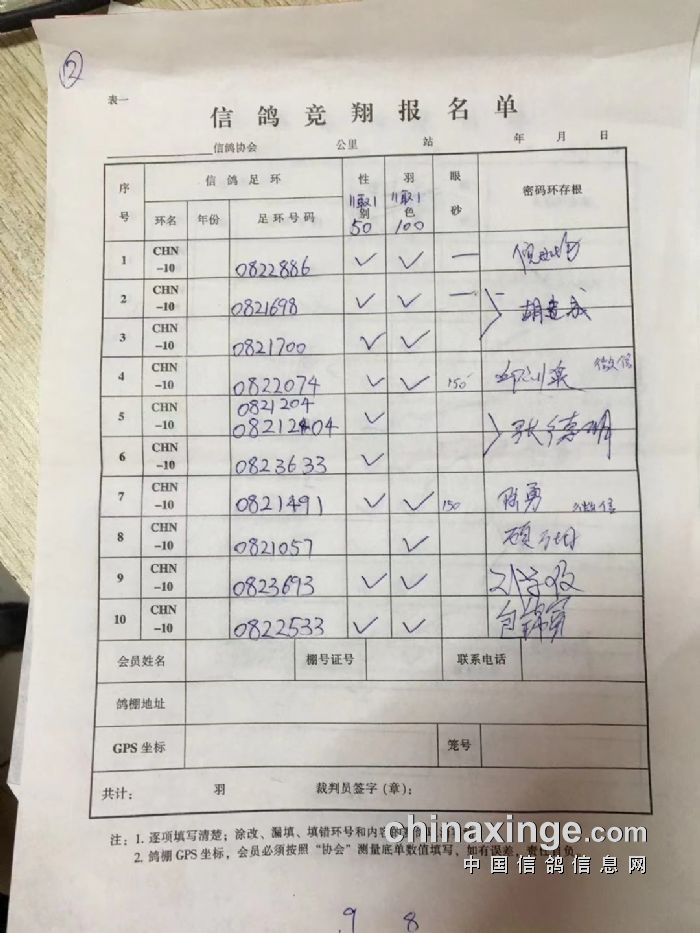 ②
表一
信鸽竞翔报名单
信鸽协会 公里 站 年 月 日
序号 信鸽足环 性别 羽色 眼砂 密码环存根
环名 年份 足环号码 11取1 50 11取1 100
1 CHN-10 0822886 ✓ ✓ —
2 CHN-10 0821698 ✓ ✓ — 胡建成
3 CHN-10 0821700 ✓ ✓
4 CHN-10 0822074 ✓ ✓ 150 微信
5 CHN-10 0821204 ✓ 张德明
6 CHN-10 0823633 ✓
7 CHN-10 0821491 ✓ ✓ 150 陈勇 微信
8 CHN-10 0821057 ✓
9 CHN-10 0823693 ✓ ✓
10 CHN-10 0822533 ✓ ✓
会员姓名 棚号证号 联系电话
鸽棚地址
GPS 坐标 笼号
共计： 羽 裁判员签字（章）：
注：1. 逐项填写清楚；涂改、漏填、填错环号和内容
2. 鸽棚 GPS 坐标，会员必须按照“协会”测量底单数值填写，如有误差，责任自负。
chinaxinge.com
中国信鸽信息网
9 8